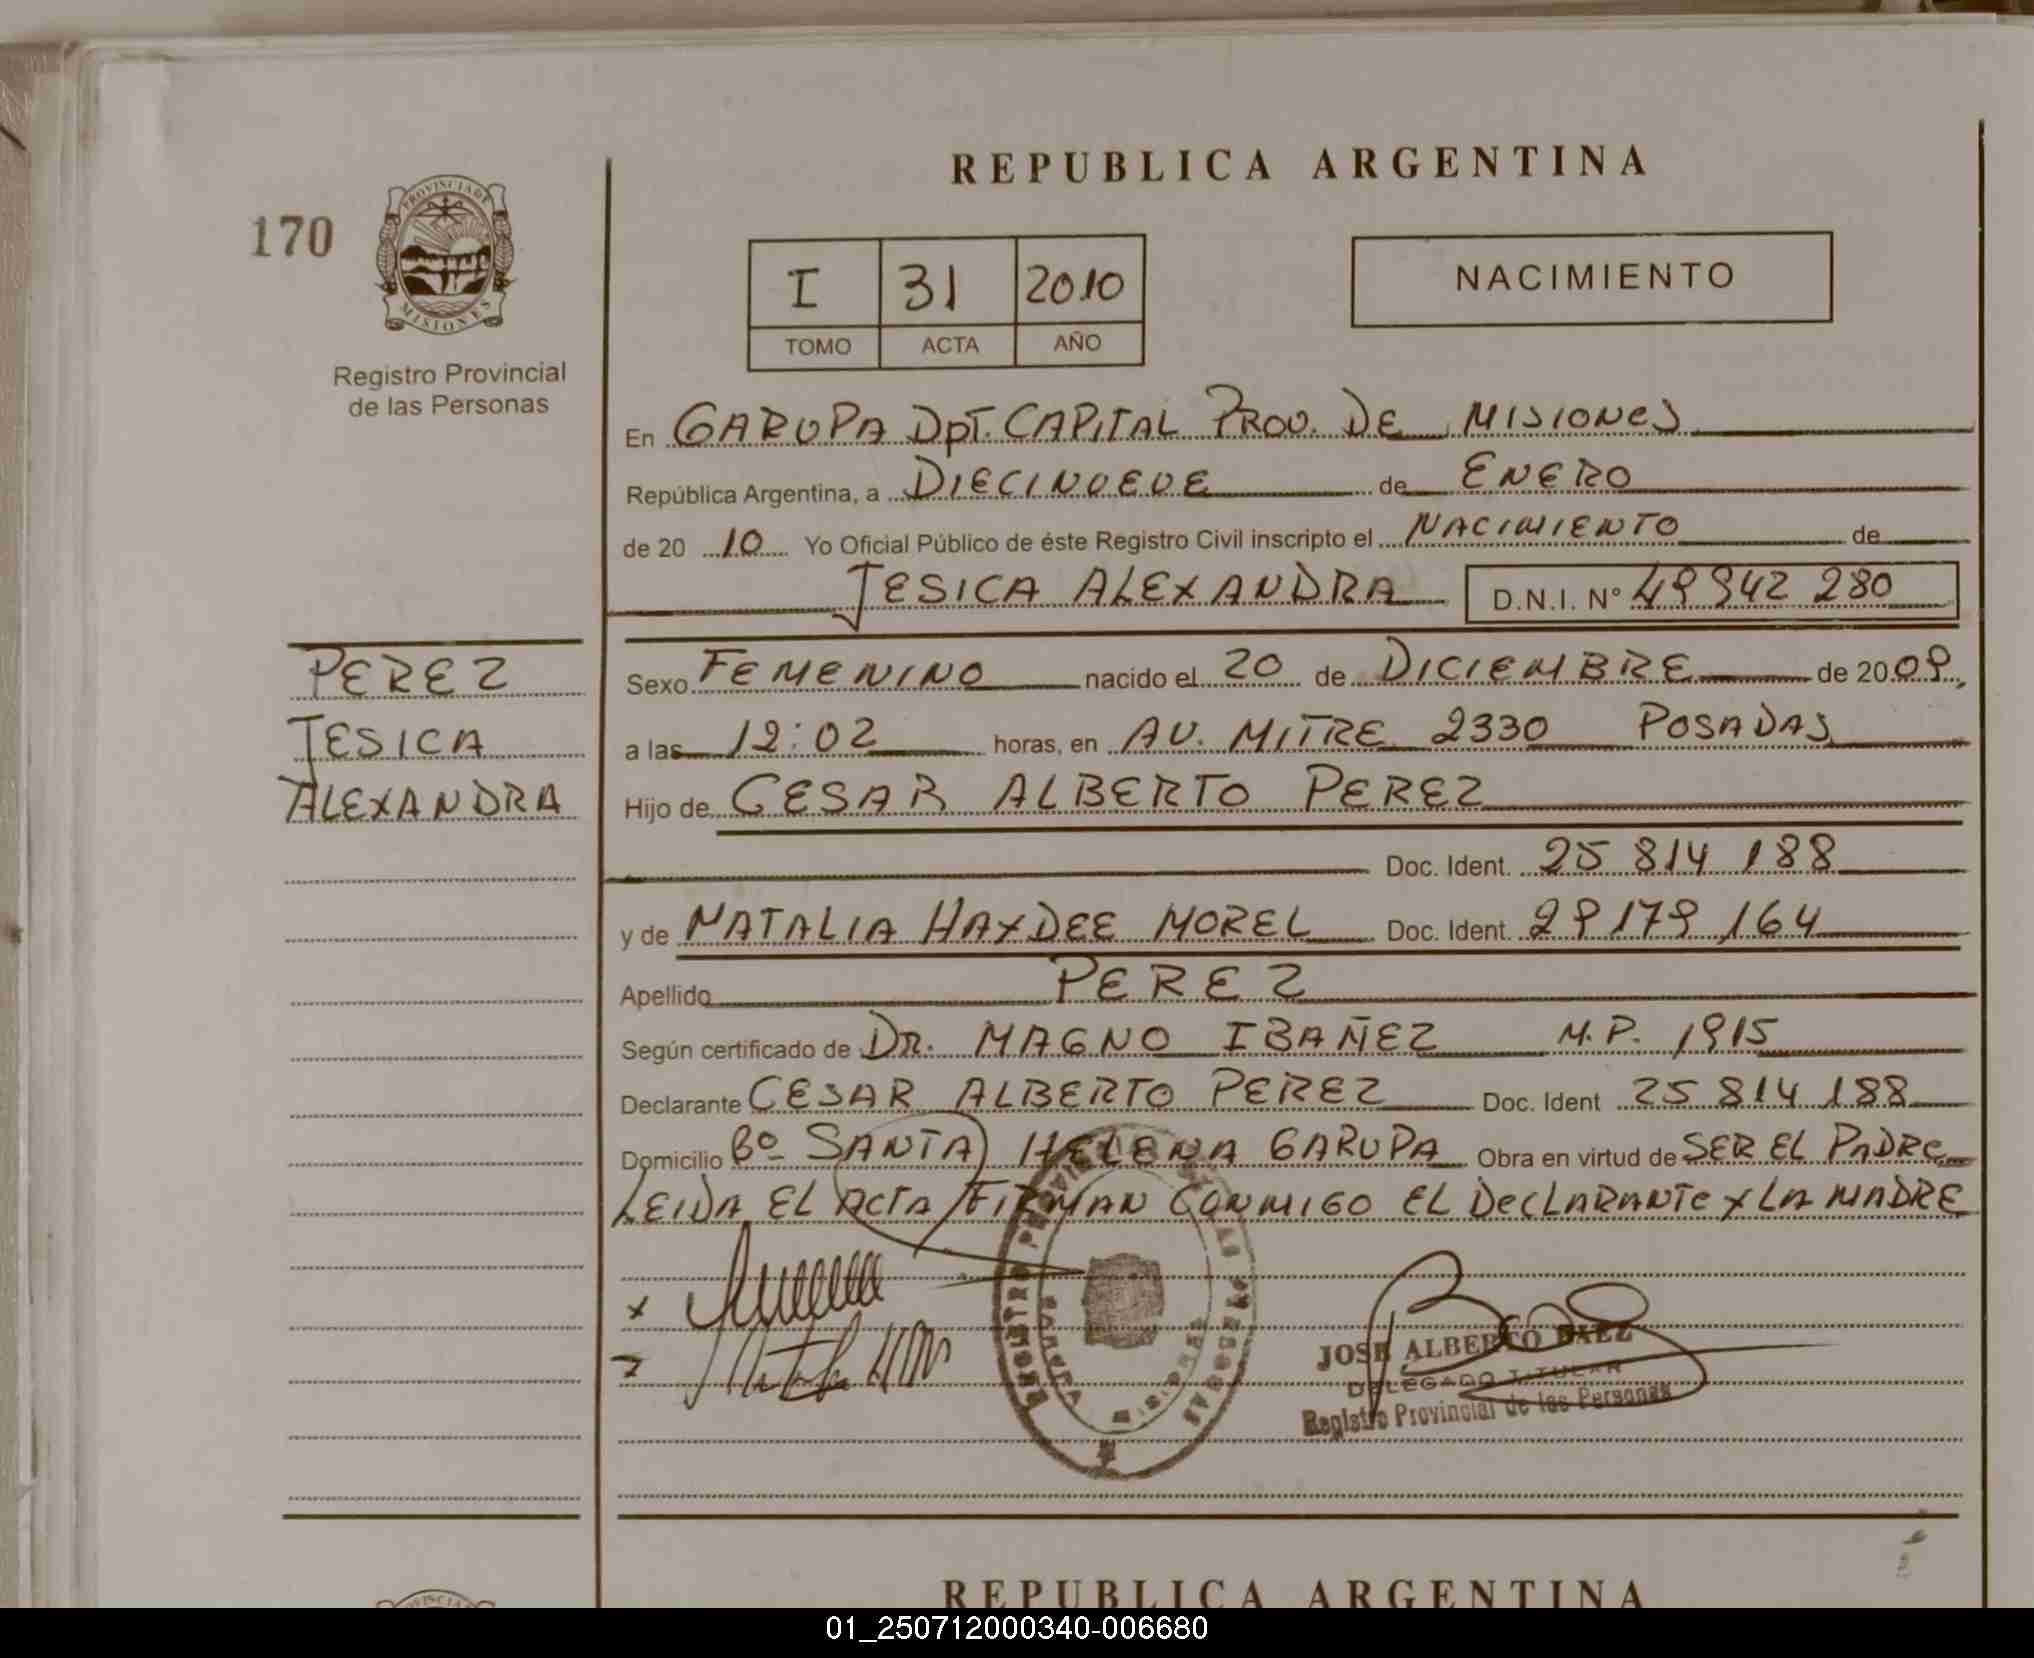 REPUBLICA ARGENTINA
170
PROVINCIA DE
MISIONES
Registro Provincial
de las Personas
I 31 2010
TOMO ACTA AÑO
NACIMIENTO
En GARUPA DPT. CAPITAL PROV. DE MISIONES
República Argentina, a DIECINUEVE de ENERO
de 20 10 Yo Oficial Público de éste Registro Civil inscripto el NACIMIENTO de
JESICA ALEXANDRA D.N.I. Nº 49 942 280
PEREZ
JESICA
ALEXANDRA
Sexo FEMENINO nacido el 20 de DICIEMBRE de 20 09,
a las 12:02 horas, en AV. MITRE 2330 POSADAS
Hijo de CESAR ALBERTO PEREZ
Doc. Ident. 25 814 188
y de NATALIA HAYDEE MOREL Doc. Ident. 29 179 164
Apellido PEREZ
Según certificado de DR. MAGNO IBAÑEZ M.P. 1915
Declarante CESAR ALBERTO PEREZ Doc. Ident 25 814 188
Domicilio Bº SANTA HELENA GARUPA Obra en virtud de SER EL PADRE
LEIDA EL ACTA FIRMAN CONMIGO EL DECLARANTE Y LA MADRE
JOSE ALBERTO BAEZ
DELEGADO TITULAR
Registro Provincial de las Personas
REPUBLICA ARGENTINA
01_250712000340-006680